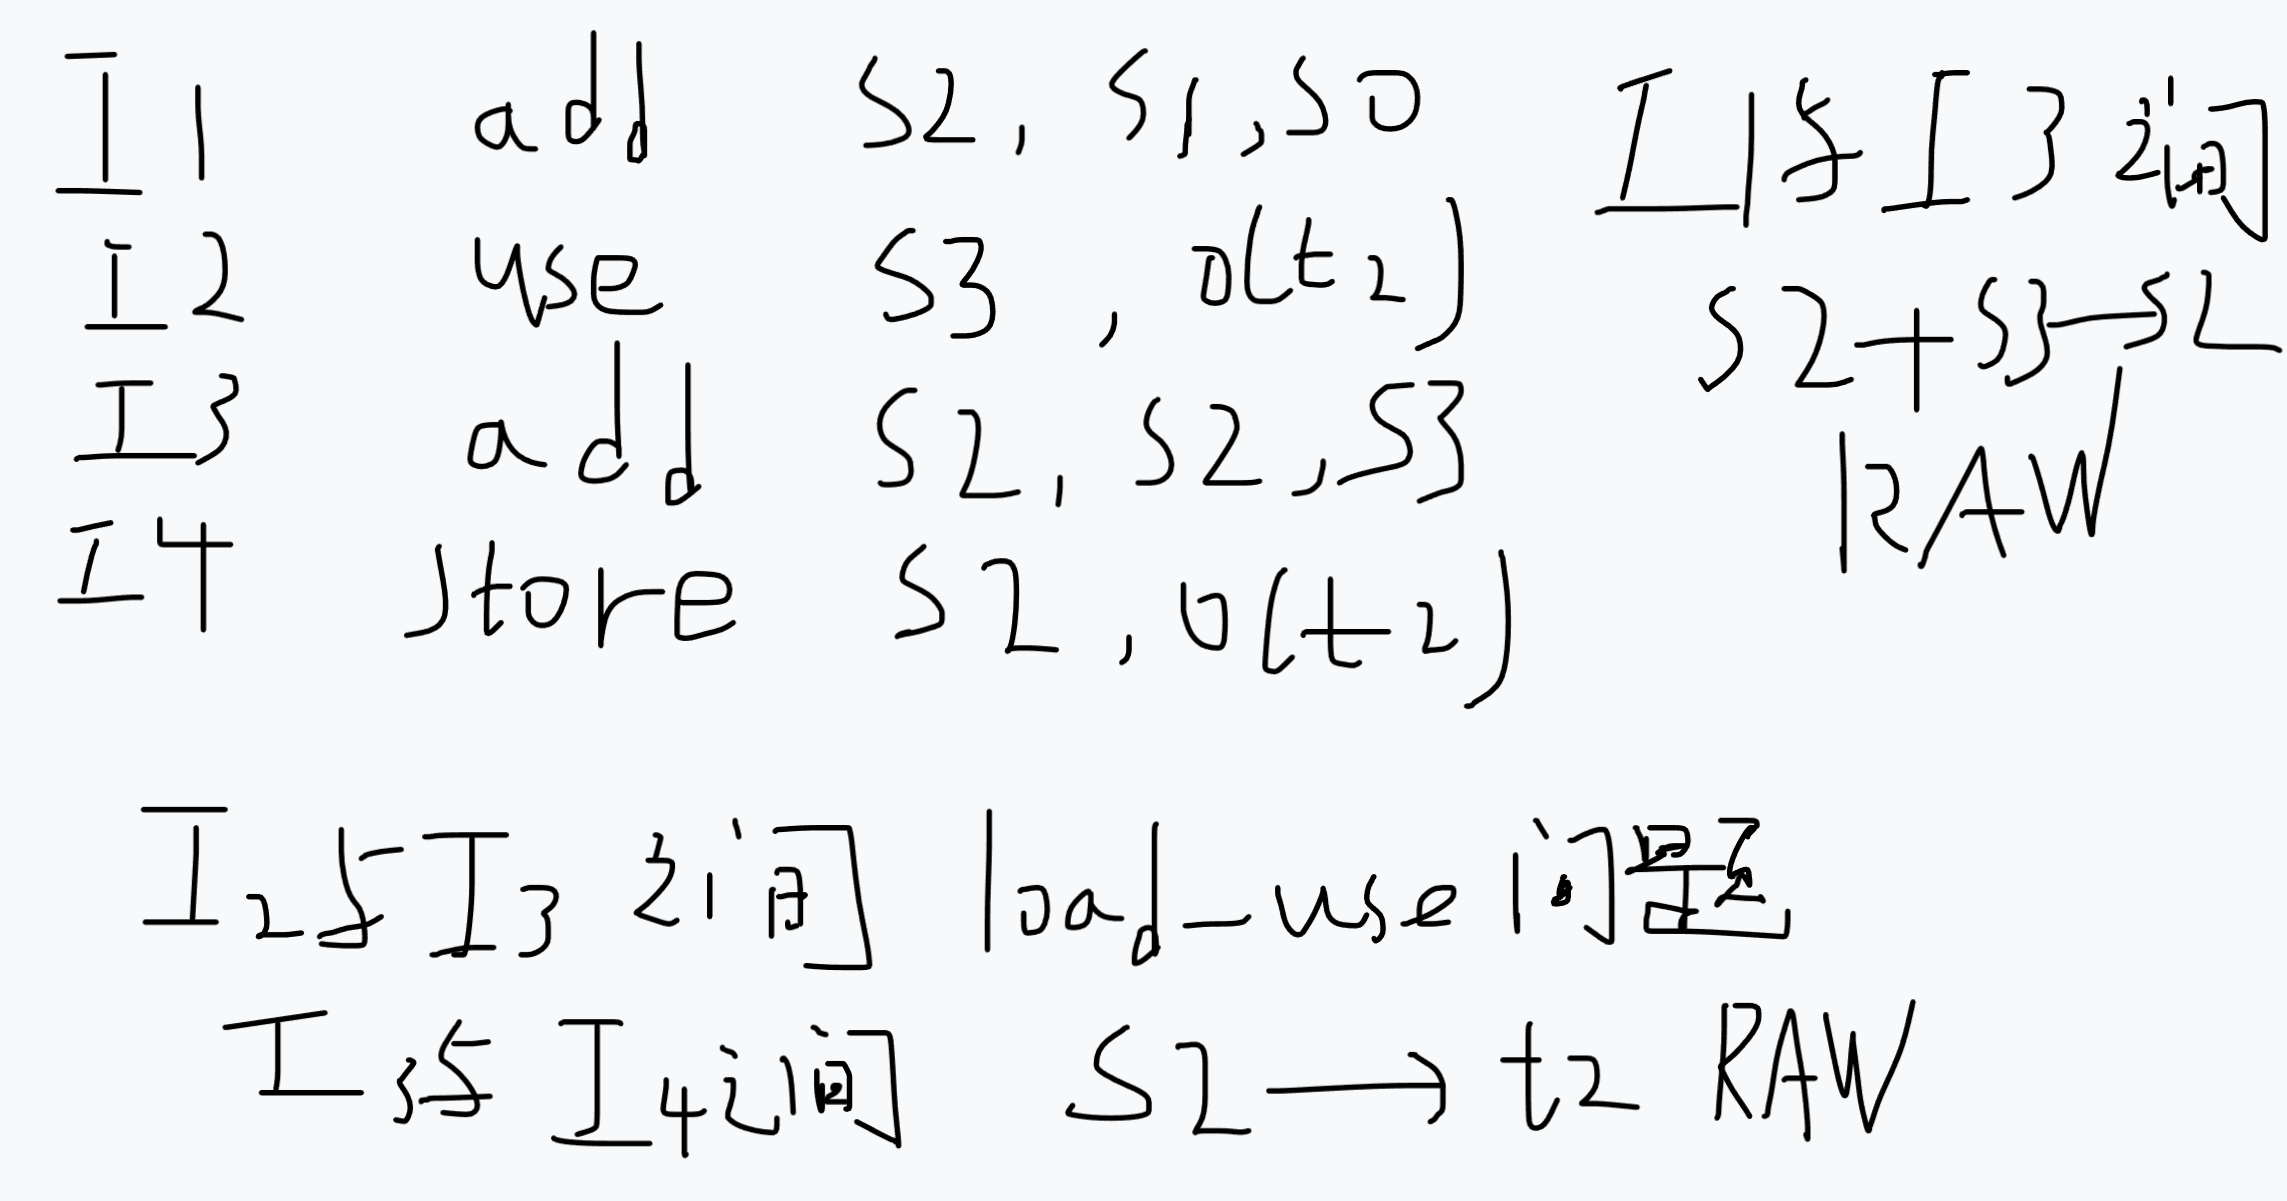 I1 add S2, S1, S0
I1与I3之间
I2 use S3, 0(t2)
S2+S3→S2
I3 add S2, S2, S3
RAW
I4 store S2, 0(t2)
I2与I3之间load-use问题
I3与I4之间 S2→t2 RAW